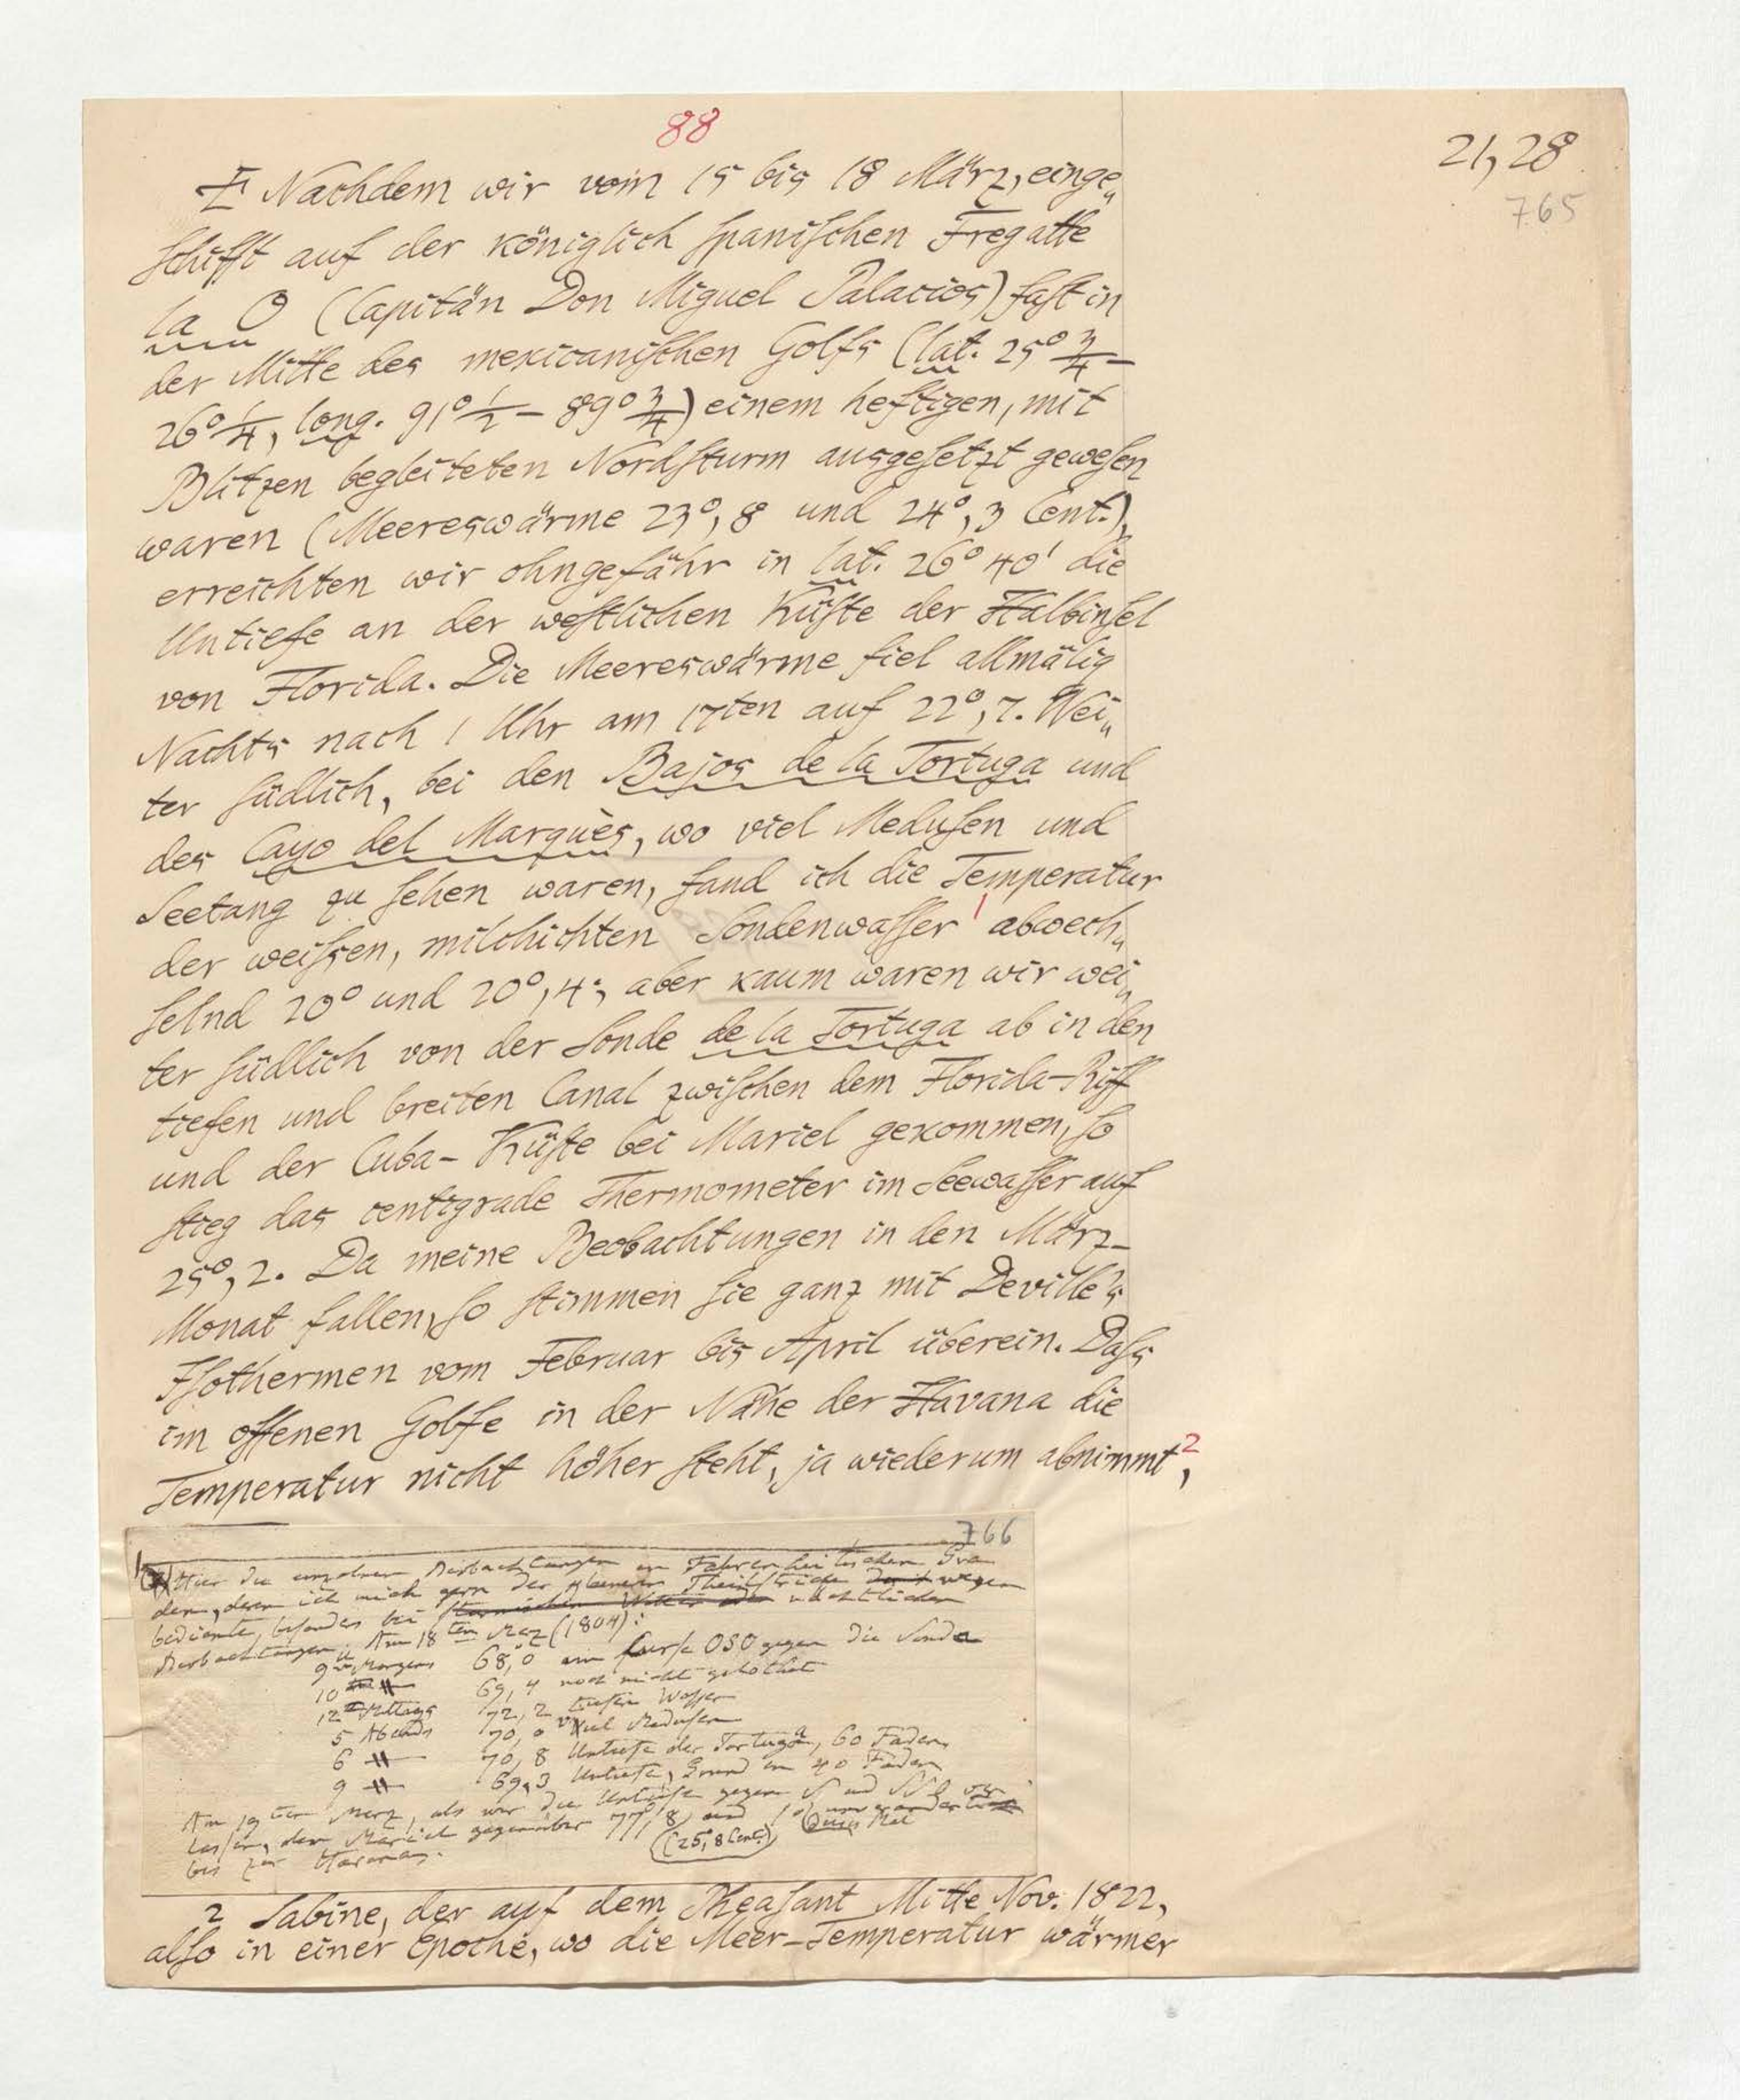 88
21, 28
765
E Nachdem wir vom 15 bis 18 März, einge„
schifft auf der königlich spanischen Fregatte
la O (Capitän Don Miguel Palacios) fast in
der Mitte des mexicanischen Golfs (lat. 25° 3/4 –
26° 1/4, long. 91° 1/2 – 89° 3/4) einem heftigen, mit
Blitzen begleiteten Nordsturm ausgesetzt gewesen
waren (Meereswärme 23°,8 und 24°,3 Cent.),
erreichten wir ohngefähr in lat. 26° 40' die
Untiefe an der westlichen Küste der Halbinsel
von Florida. Die Meereswärme fiel allmälig
Nachts nach 1 Uhr am 17ten auf 22°,7. Wei„
ter südlich, bei den Bajos de la Tortuga und
des Cayo del Marquès, wo viel Medusen und
Seetang zu sehen waren, fand ich die Temperatur
der weißen, milchichten Sondenwasser 1 abwech„
selnd 20° und 20°,4; aber kaum waren wir wei„
ter südlich von der Sonde de la Tortuga ab in den
tiefen und breiten Canal zwischen dem Florida-Riff
und der Cuba-Küste bei Mariel gekommen, so
stieg das centigrade Thermometer im Seewasser auf
25°,2. Da meine Beobachtungen in den März-
Monat fallen, so stimmen sie ganz mit Deville's
Isothermen vom Februar bis April überein. Daß
im offenen Golfe in der Nähe der Havana die
Temperatur nicht höher steht, ja wiederum abnimmt 2,
766
1 Hier die einzelnen Beobachtungen in Fahrenheitischen Gra
den, deren ich mich gern der kleineren Theilstriche wegen
bediente, besonders bei stürmischem Wetter oder nächtlichen
Beobachtungen. Am 18ten Merz (1804):
9 Morgens 68,0 im Curse OSO gegen die Sonde
10 " 69,4 noch nicht gelothet
12 Mittags 72,2 tiefer Wasser
5 Abends 70,0 viel Medusen
6 " 70,8 Untiefe der Tortuga, 60 Faden
9 " 69,3 Untiefe, Grund in 40 Faden
Am 19ten Merz, als wir die Untiefe gegen S und SSO ver
lassen, dem Mariel gegenüber 77°,8 und so unverändert
(25°,8 Cent.)
bis zur Havana.
2 Sabine, der auf dem Pheasant Mitte Nov. 1822,
also in einer Epoche, wo die Meer-Temperatur wärmer